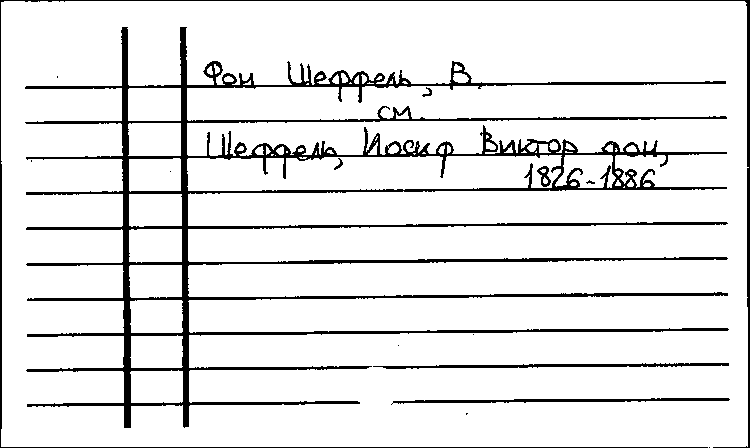 Фон Шеффель, В.
см.
Шеффель, Иосиф Виктор фон,
1826-1886